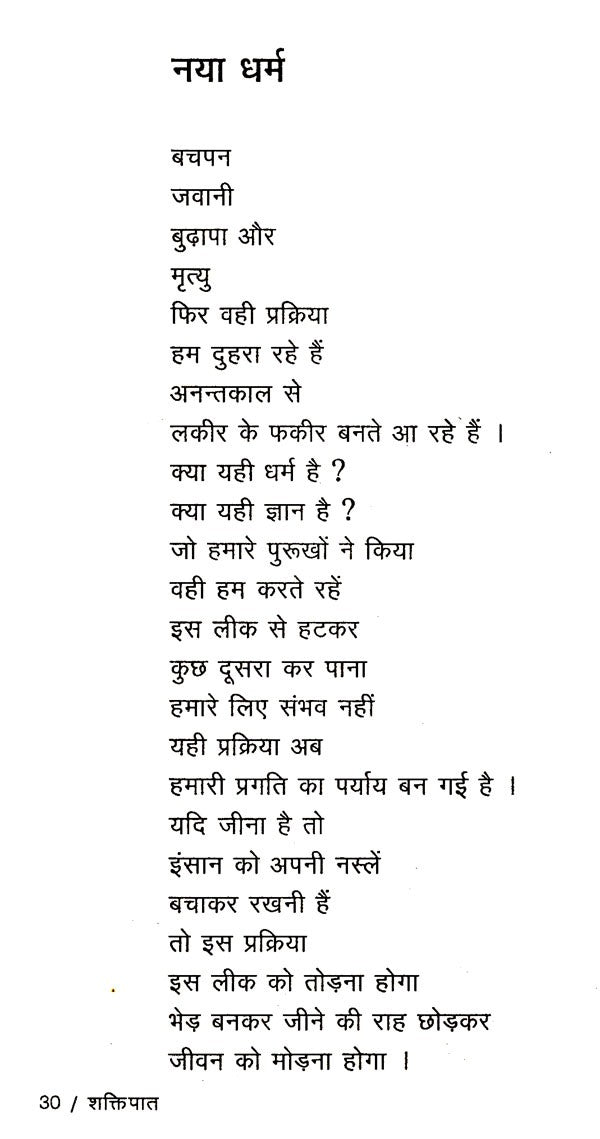 नया धर्म
बचपन
जवानी
बुढ़ापा और
मृत्यु
फिर वही प्रक्रिया
हम दुहरा रहे हैं
अनन्तकाल से
लकीर के फकीर बनते आ रहे हैं ।
क्या यही धर्म है ?
क्या यही ज्ञान है ?
जो हमारे पुरूखों ने किया
वही हम करते रहें
इस लीक से हटकर
कुछ दूसरा कर पाना
हमारे लिए संभव नहीं
यही प्रक्रिया अब
हमारी प्रगति का पर्याय बन गई है ।
यदि जीना है तो
इंसान को अपनी नस्लें
बचाकर रखनी हैं
तो इस प्रक्रिया
इस लीक को तोड़ना होगा
भेड़ बनकर जीने की राह छोड़कर
जीवन को मोड़ना होगा ।
30 / शक्तिपात